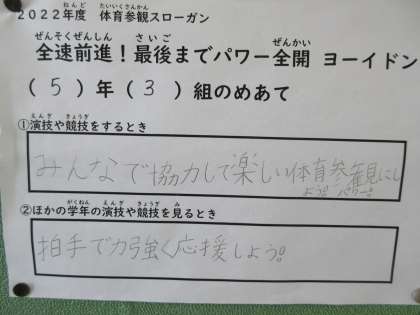 2022年度 体育参観スローガン
全速前進！最後までパワー全開 ヨーイドン
（5）年（3）組のめあて
①演技や競技をするとき
みんなで協力して楽しい体育参観にし
よう。
②ほかの学年の演技や競技を見るとき
拍手で力強く応援しよう。